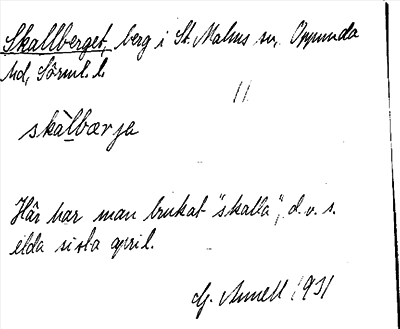 Skallberget, berg i St. Malms sn, Oppunda
hd, Sörml. l.
skàlbærja
Här har man brukat "skalla", d.v.s.
elda sista april.
G. Annell 1931